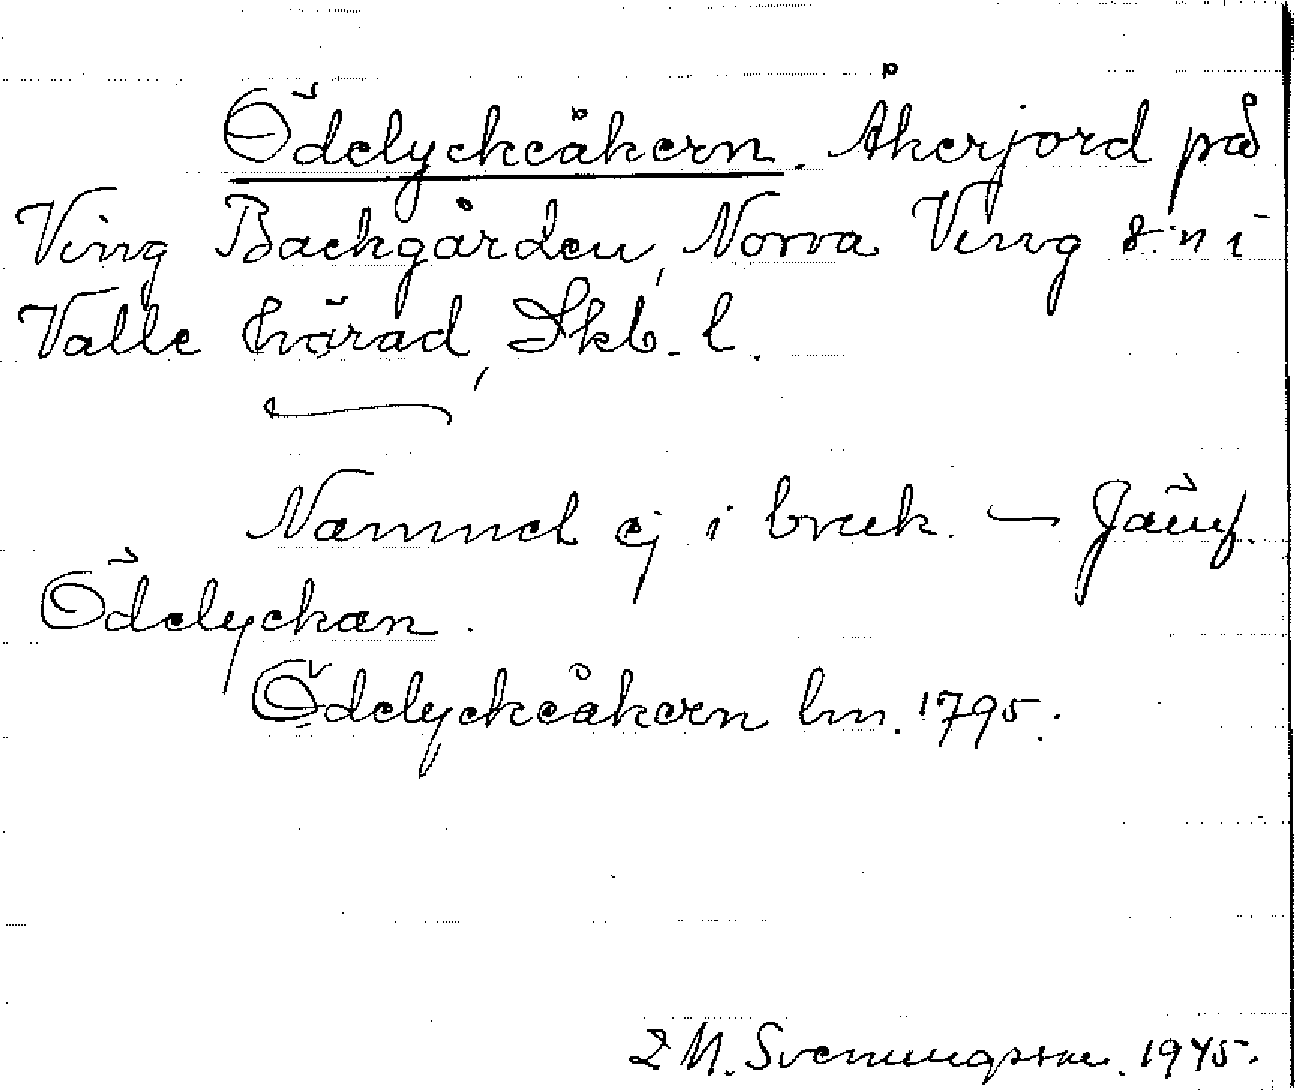 Ödelyckeåkern. Åkerjord på
Ving Backgården, Norra Ving s:n i
Valle härad, Skb. l.
Namnet ej i bruk. — Jämf.
Ödelyckan.
Ödelyckeåkern lm. 1795.
M. Svenningsson. 1945.